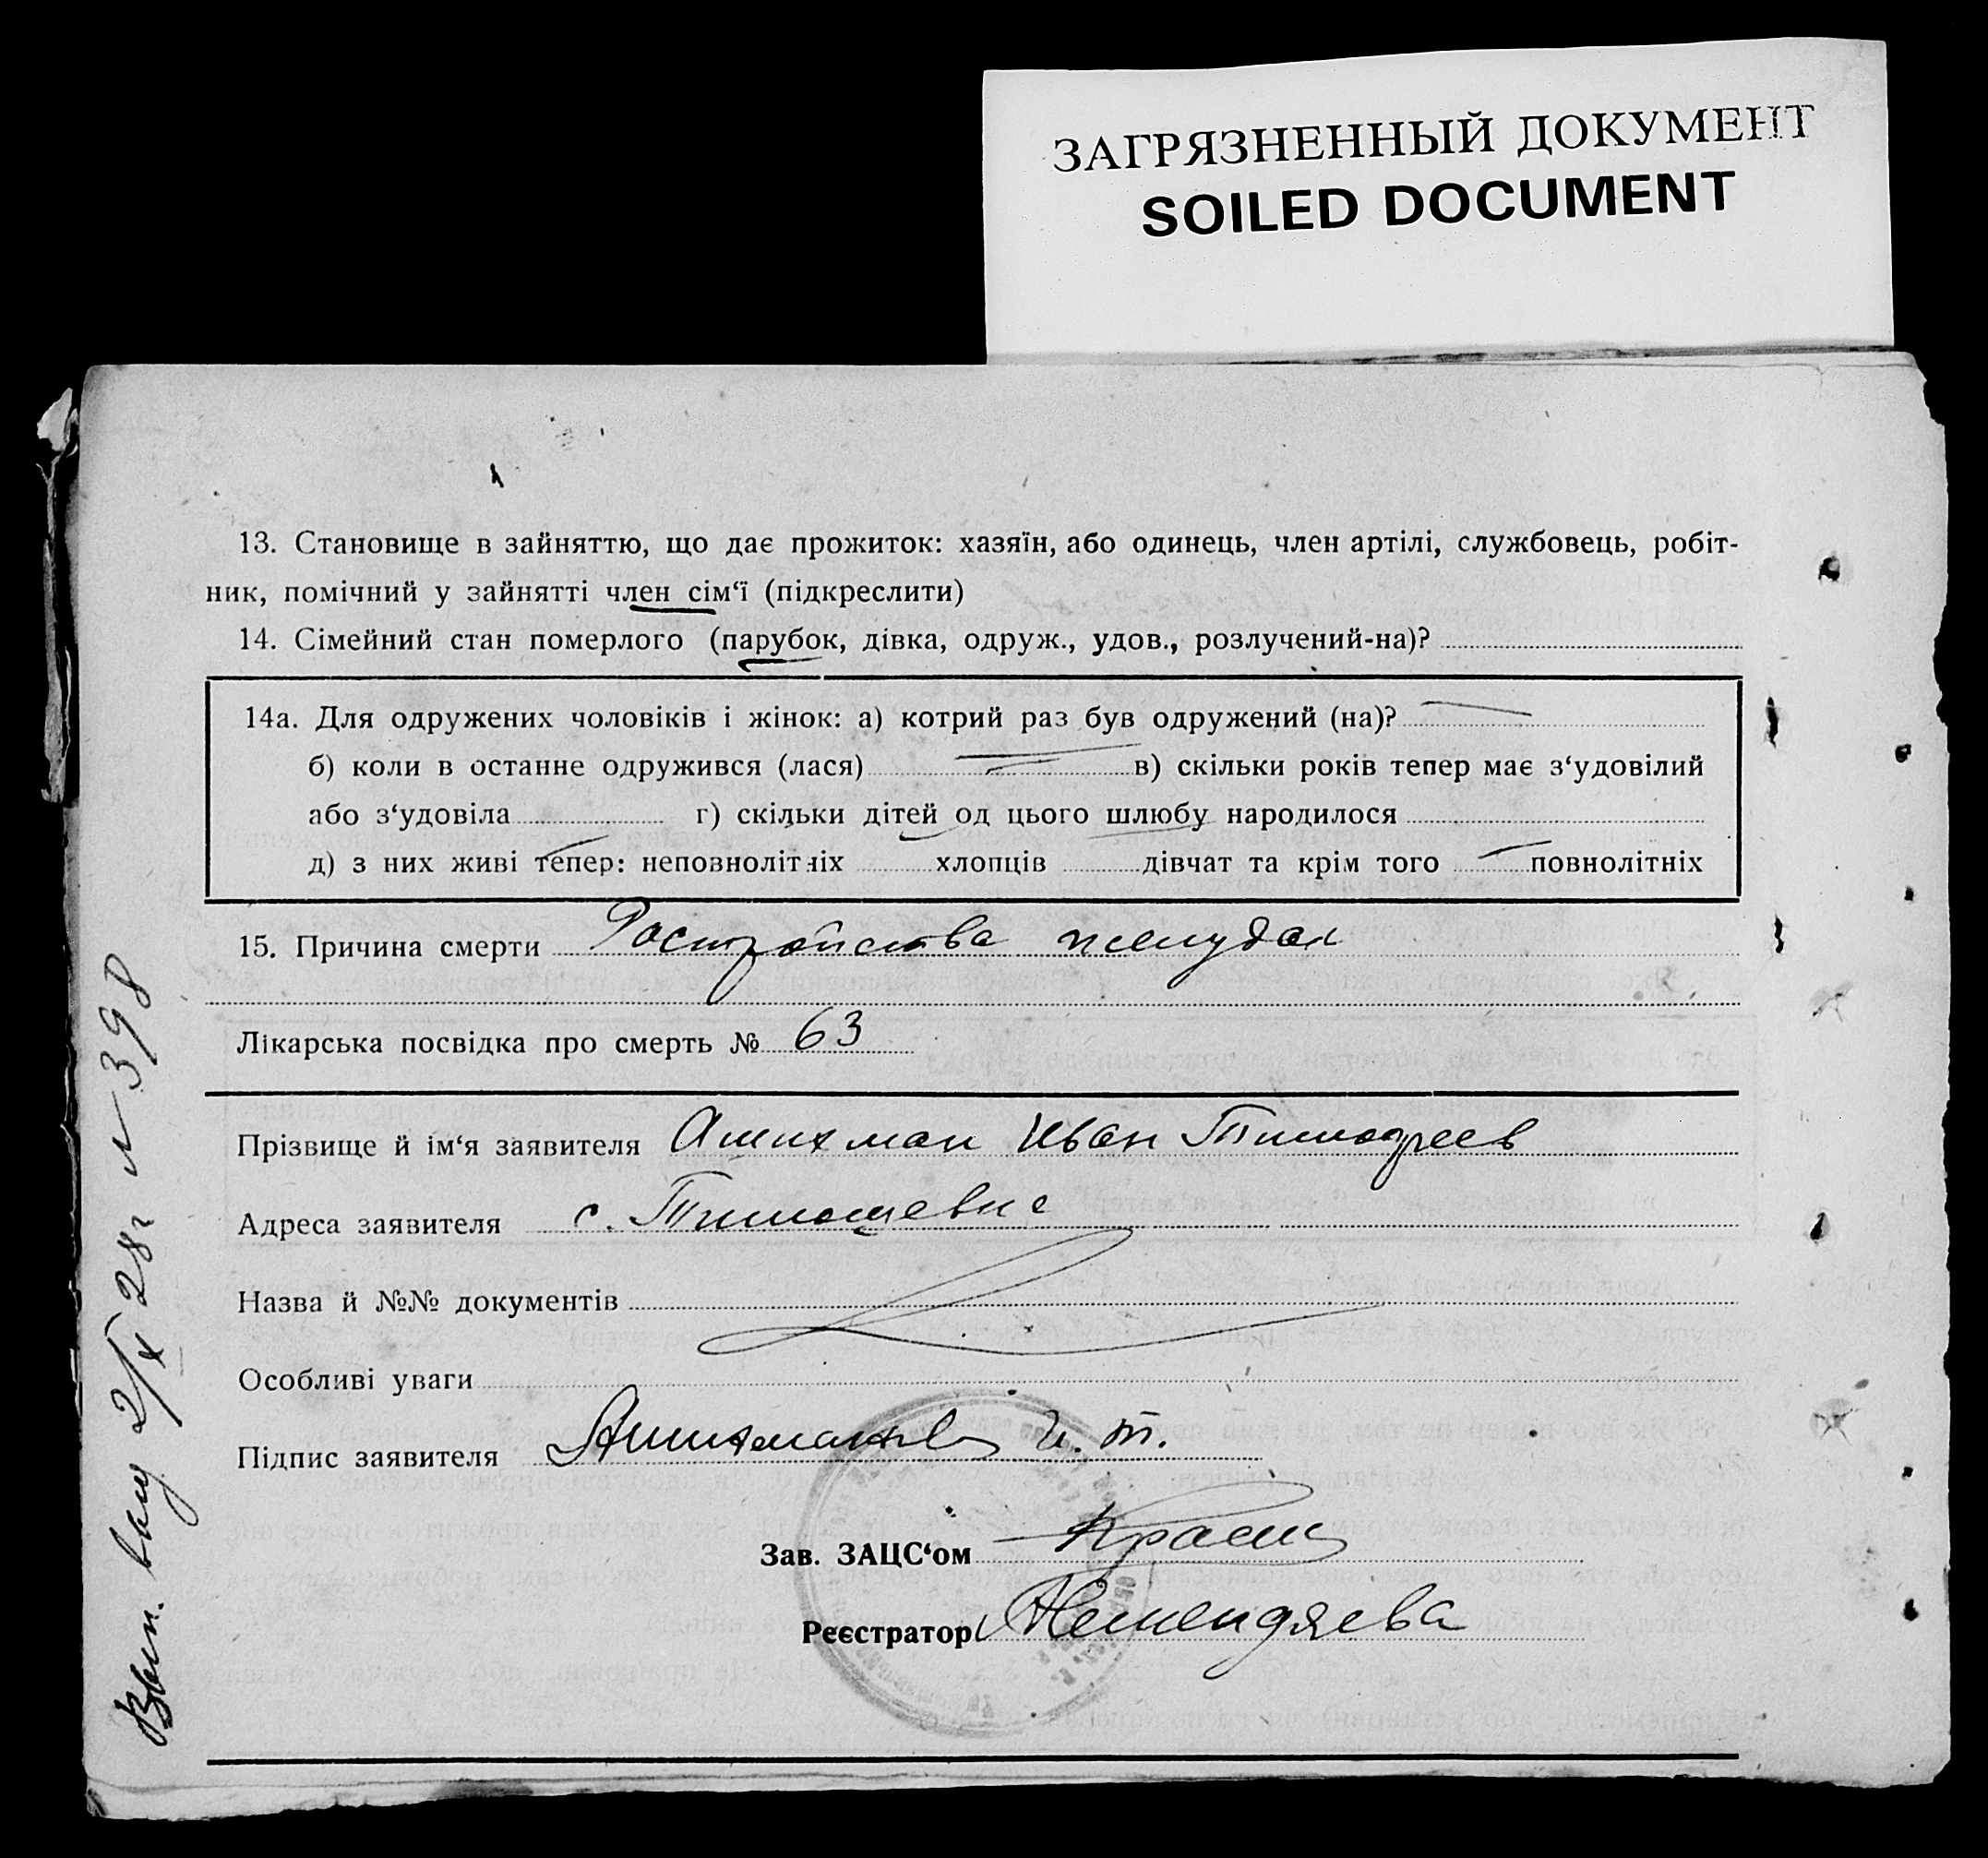 ЗАГРЯЗНЕННЫЙ ДОКУМЕНТ
SOILED DOCUMENT
13. Становище в зайняттю, що дає прожиток: хазяїн, або одинець, член артілі, службовець, робіт-
ник, помічний у зайнятті член сім‘ї (підкреслити)
14. Сімейний стан померлого (парубок, дівка, одруж., удов., розлучений-на)?
14а. Для одружених чоловіків і жінок: а) котрий раз був одружений (на)?
б) коли в останне одружився (лася) в) скільки років тепер має з‘удовілий
або з‘удовіла г) скільки дітей од цього шлюбу народилося
д) з них живі тепер: неповнолітніх хлопців дівчат та крім того повнолітніх
15. Причина смерти Растройства
Лікарська посвідка про смерть № 63
Прізвище й ім‘я заявителя Иван
Адреса заявителя с.
Назва й №№ документів
Особливі уваги
Підпис заявителя И. Т.
Зав. ЗАЦС‘ом
Реєстратор
2/X 28 г № 398